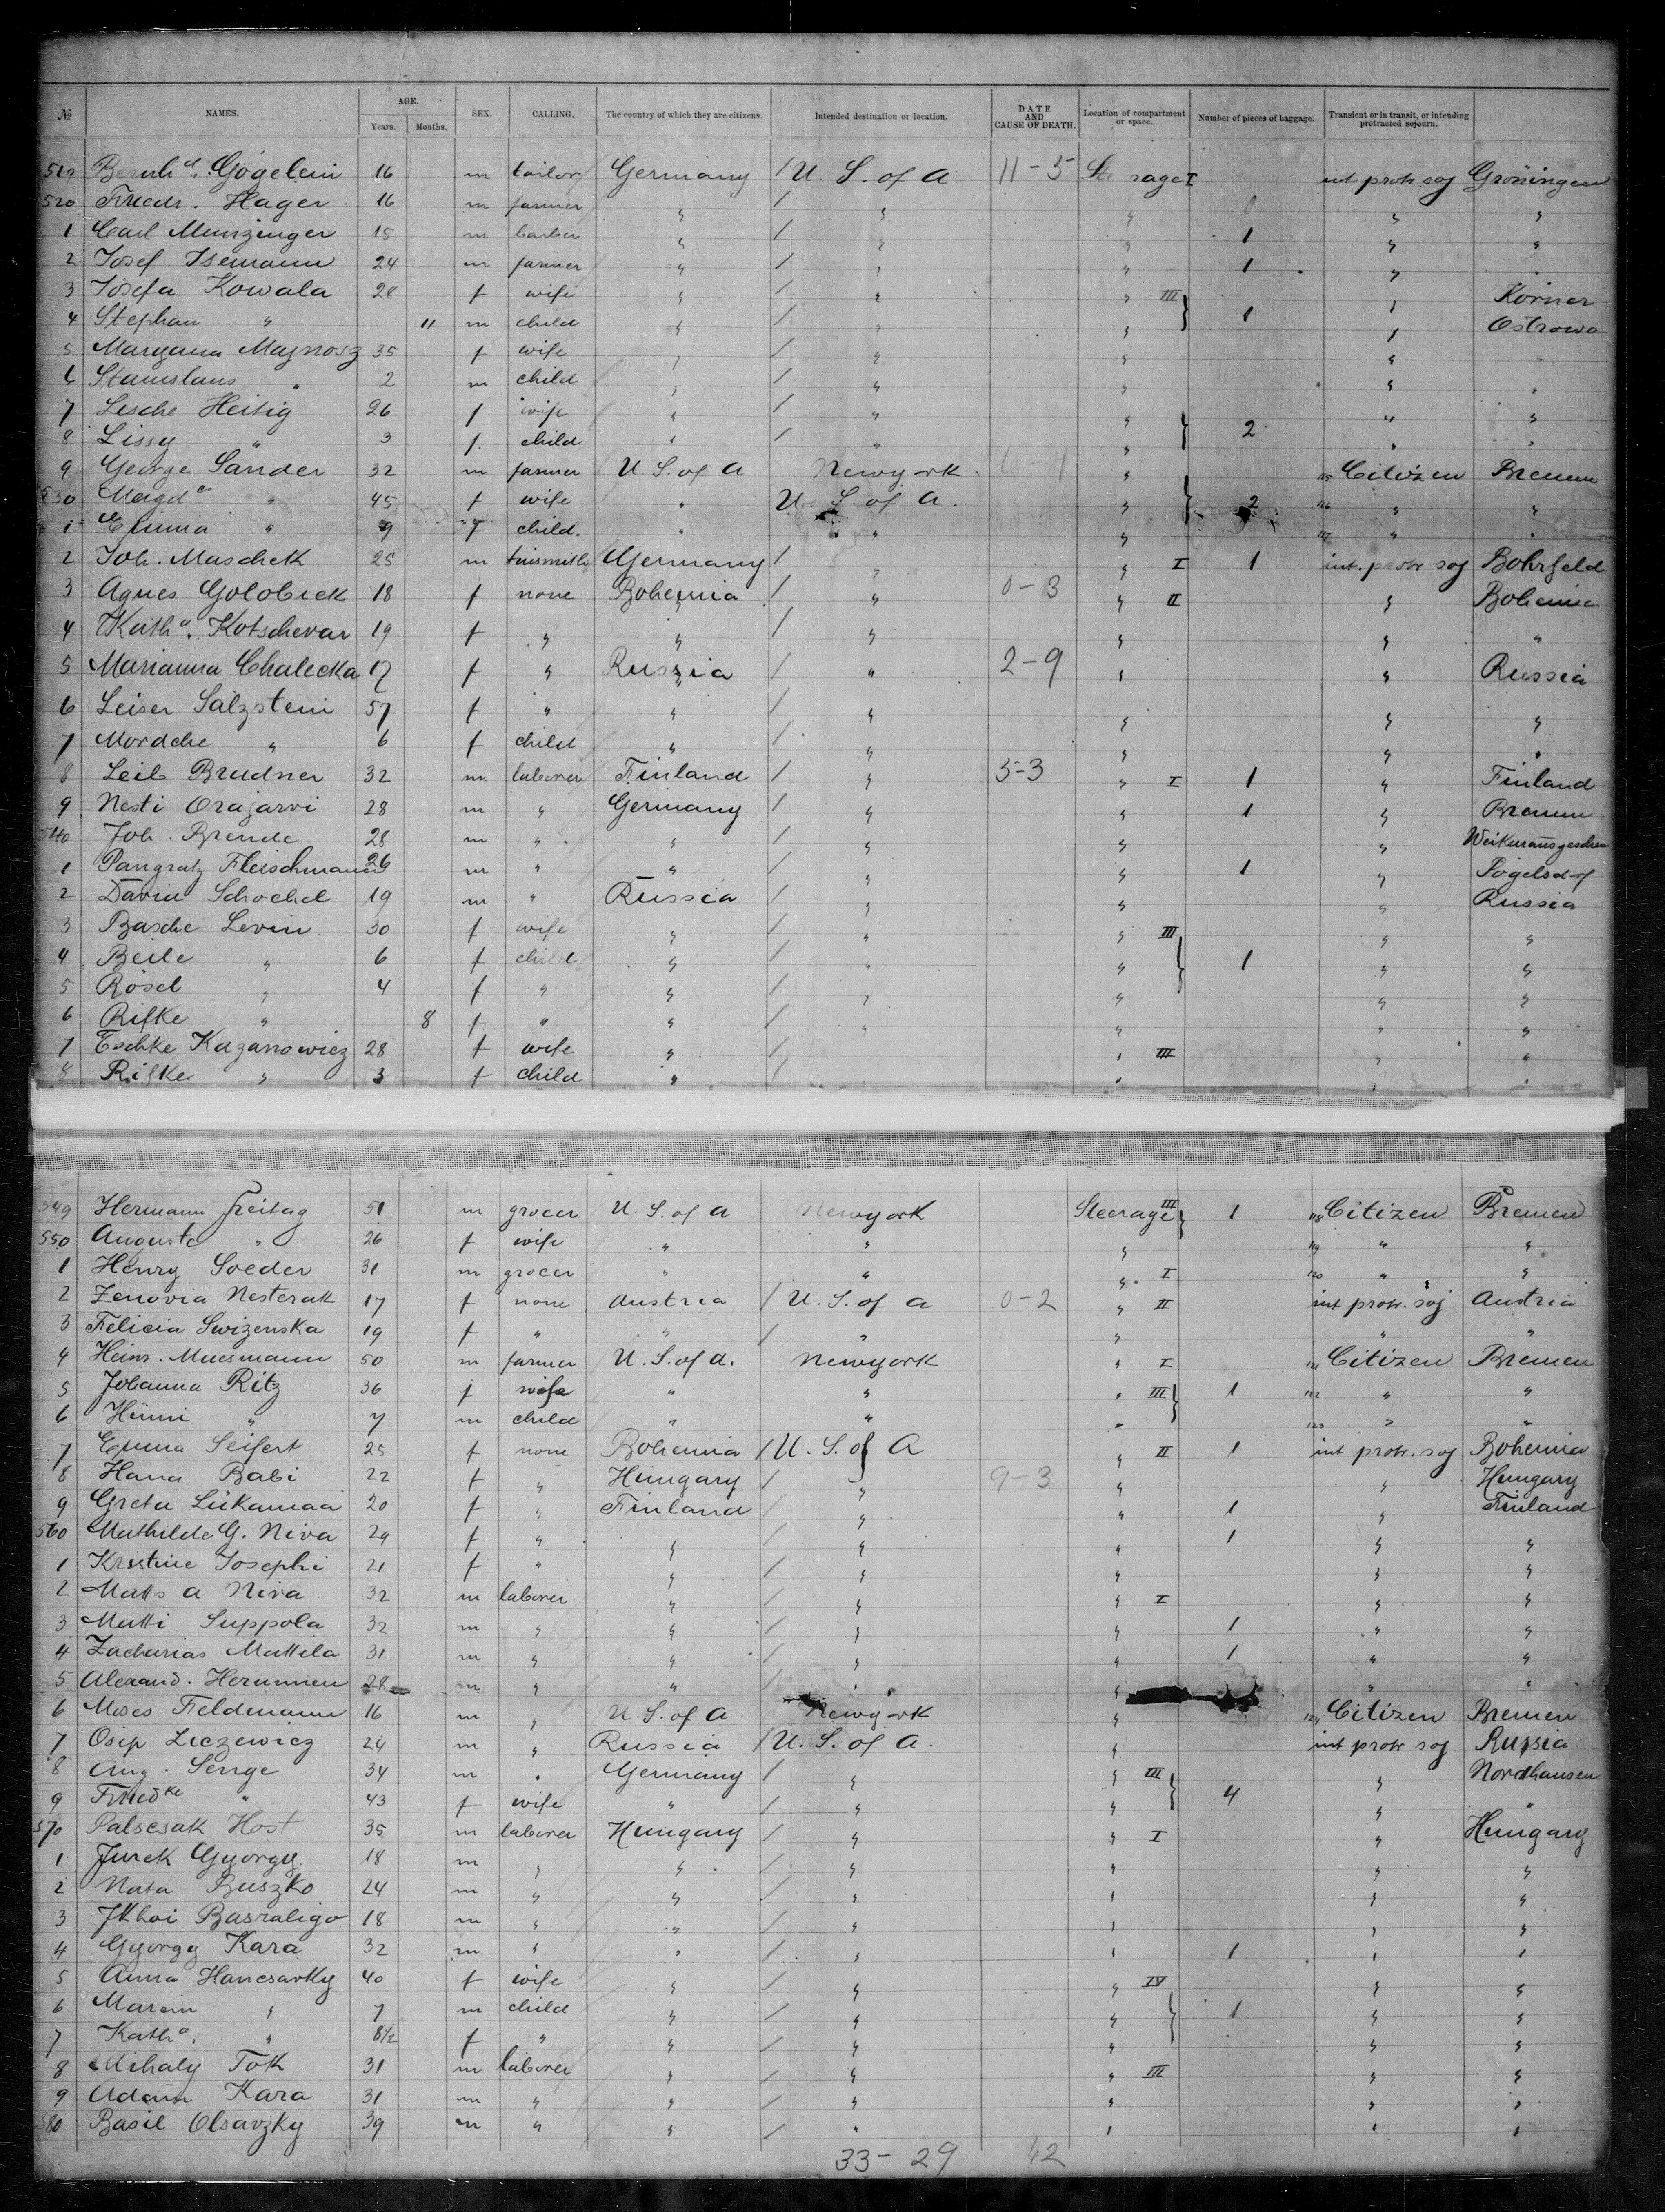 № NAMES. AGE. Years. Months. SEX. CALLING. The country of which they are citizens. Intended destination or location. DATE AND CAUSE OF DEATH. Location of compartment or space. Number of pieces of baggage. Transient or in transit, or intending protracted sojourn.
519 Bernh d. Gögelein 16 m tailor Germany / U. S. of A 11-5 Steerage I int protr. soj Gröningen
520 Friedr. Hager 16 m farmer " / " " " "
1 Carl Munzinger 15 m barber " / " " 1 " "
2 Josef Isemann 24 m farmer " / " " 1 "
3 Josefa Kowala 28 f wife " / " " III " Körner
4 Stephan " 11 m child " / " " 1 " Ostrowo
5 Maryanna Majnosz 35 f wife " / " " "
6 Stanislaus " 2 m child " / " " " "
7 Lesche Heitig 26 f wife " / " " " "
8 Lissy " 3 f. child " / " " 2 " "
9 George Sander 32 m farmer U. S. of A Newyork " 115 Citizen Bremen
530 Magd a " 45 f wife " U. S. of A. " 2 116 " "
1 Emma " 9 f child. " " " 117 " "
2 Joh. Maschek 25 m tinsmith Germany / " " I 1 int. protr soj Bohrfeld
3 Agnes Golobick 18 f none Bohemia / " 0-3 " II " Bohemia
4 Kath a. Kotschevar 19 f " " / " " " "
5 Marianna Chalecka 17 f " Russia / " 2-9 " " Russia
6 Leiser Salzstein 57 f " " / " " " "
7 Mordche " 6 f child " / " " " "
8 Leib Brudner 32 m laborer Finland / " 5-3 " I 1 " Finland
9 Nesti Orajarvi 28 m " Germany / " " 1 " Bremen
540 Joh. Brende 28 m " " / " " "
1 Pangratz Fleischmann 26 m " " / " " 1 " Pögelsdorf
2 David Schochel 19 m " Russia / " " " Russia
3 Basche Levin 30 f wife " / " " III " "
4 Beile " 6 f child " / " " 1 " "
5 Rösel " 4 f " " / " " " "
6 Rifke " 8 f " " / " " "
7 Eschke Kazanowicz 28 f wife " / " III " "
8 Rifke " 3 f child " / " " "
549 Hermann Freitag 51 m grocer U. S. of A Newyork Steerage III 1 118 Citizen Bremen
550 Auguste " 26 f wife " " " 119 " "
1 Henry Soeder 31 m grocer " " " I 120 " "
2 Zenovia Nesterak 17 f none Austria / U. S. of A 0-2 " II int protr. soj Austria
3 Felicia Swizenska 19 f " " / " " " "
4 Heinr. Muesmann 50 m farmer U. S. of A. Newyork " I 121 Citizen Bremen
5 Johanna Ritz 36 f wife " " " III 1 122 " "
6 Hinni " 7 m child " " " 123 " "
7 Emma Seifert 25 f none Bohemia / U. S. of A " II 1 int protr. soj Bohemia
8 Hana Babi 22 f " Hungary / " 9-3 " " Hungary
9 Greta Lükamaa 20 f " Finland / " " 1 " Finland
560 Mathilde G. Niva 29 f " " / " " 1 " "
1 Kristine Josephi 21 f " " / " " " "
2 Matts A Niva 32 m laborer " / " " I " "
3 Matti Suppola 32 m " " / " " 1 " "
4 Zacharias Mattila 31 m " " / " " 1 " "
5 Alexand. Herunnen 28 m " " / " " " "
6 Moses Feldmann 16 m " U. S. of A Newyork " 124 Citizen Bremen
7 Osip Liczewicz 24 m " Russia / U. S. of A. " int protr soj Russia
8 Aug. Senge 34 m " Germany / " " III " Nordhausen
9 Fried ke " 43 f wife " / " " 4 " "
570 Palscsak Host 35 m laborer Hungary / " " I " Hungary
1 Jurek Gyorgy 18 m " " / " " " "
2 Nata Buszko 24 m " " / " " " "
3 Jkhoi Basraligo 18 m " " / " " " "
4 Gyorgy Kara 32 m " " / " " 1 " "
5 Anna Hancsavky 40 f wife " / " " IV " "
6 " 7 m child " / " " 1 " "
7 Kath a. " 8 1/2 f " " / " " " "
8 Mihaly Tok 31 m laborer " / " " III " "
9 Adam Kara 31 m " " / " " " "
580 Basil Olsavzky 39 m " " / " " " "
33- 29 62